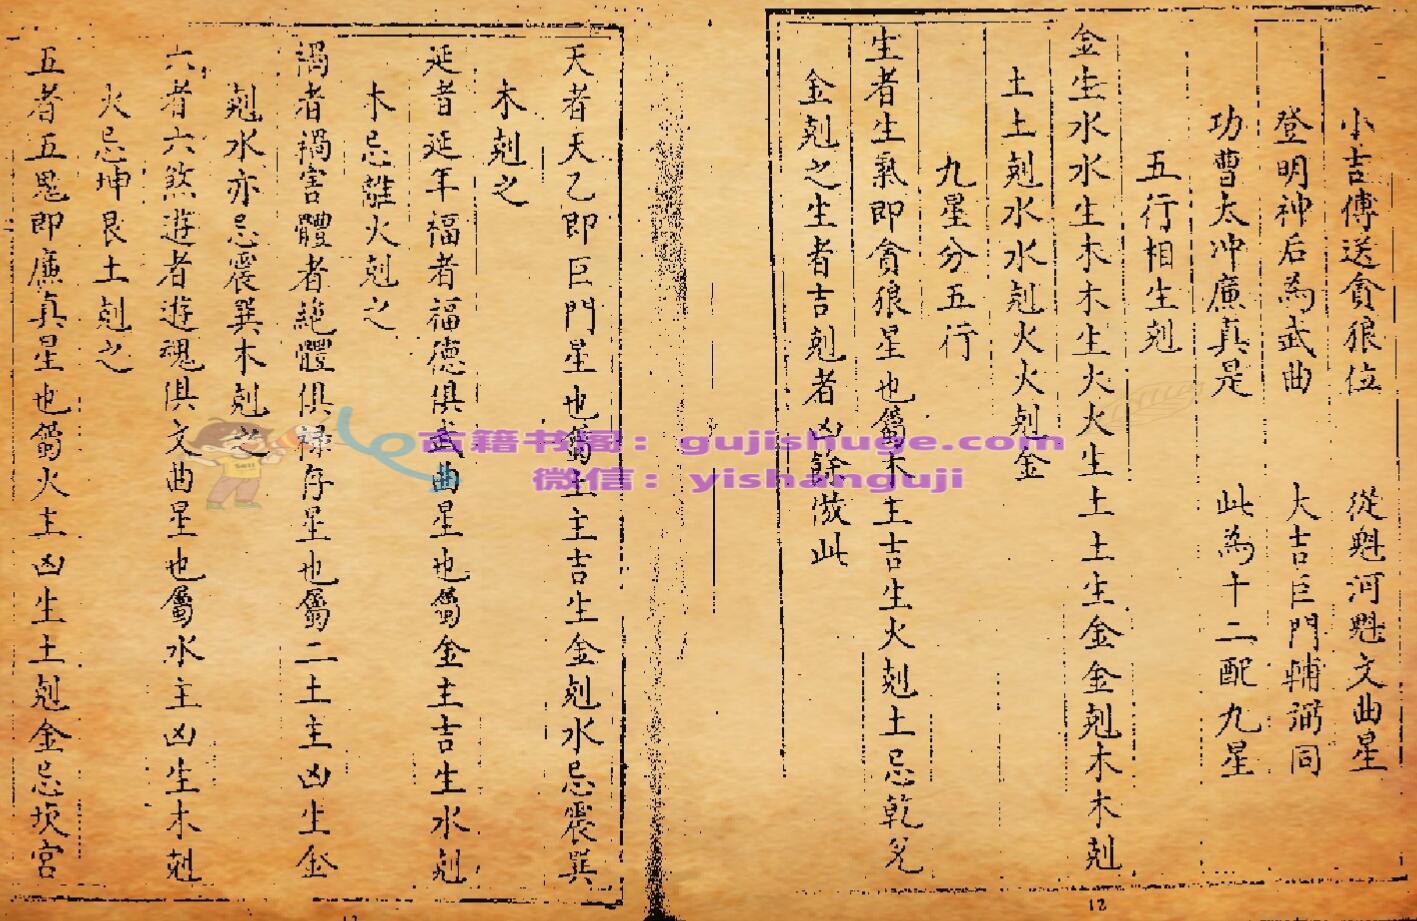 小吉傳送貪狼位 從魁河魁文曲星
登明神后為武曲 大吉巨門輔弼同
功曹太冲廉真是 此為十二配九星
五行相生剋
金生水水生木木生火火生土土生金金剋木木剋
土土剋水水剋火火剋金
九星分五行
生者生氣即貪狼星也屬木主吉生火剋土忌乾兌
金剋之生者吉剋者凶餘倣此
天者天乙即巨門星也屬土主吉生金剋水忌震巽
木剋之
延者延年福者福德俱武曲星也屬金主吉生水剋
木忌離火剋之
禍者禍害體者絶體俱祿存星也屬二土主凶生金
剋水亦忌震巽木剋之
六者六煞遊者遊魂俱文曲星也屬水主凶生木剋
火忌坤艮土剋之
五者五鬼即廉真星也屬火主凶生土剋金忌坎宮
12
古籍书阁：gujishuge.com
微信：yishanguji